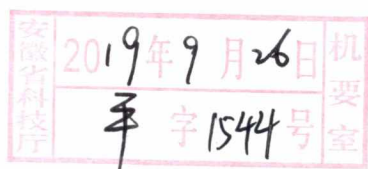 安徽省科技厅
2019年9月26日
平字1544号
机要室